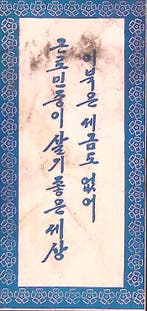 이북은 세금도 없어
근로민중이 살기좋은 세상